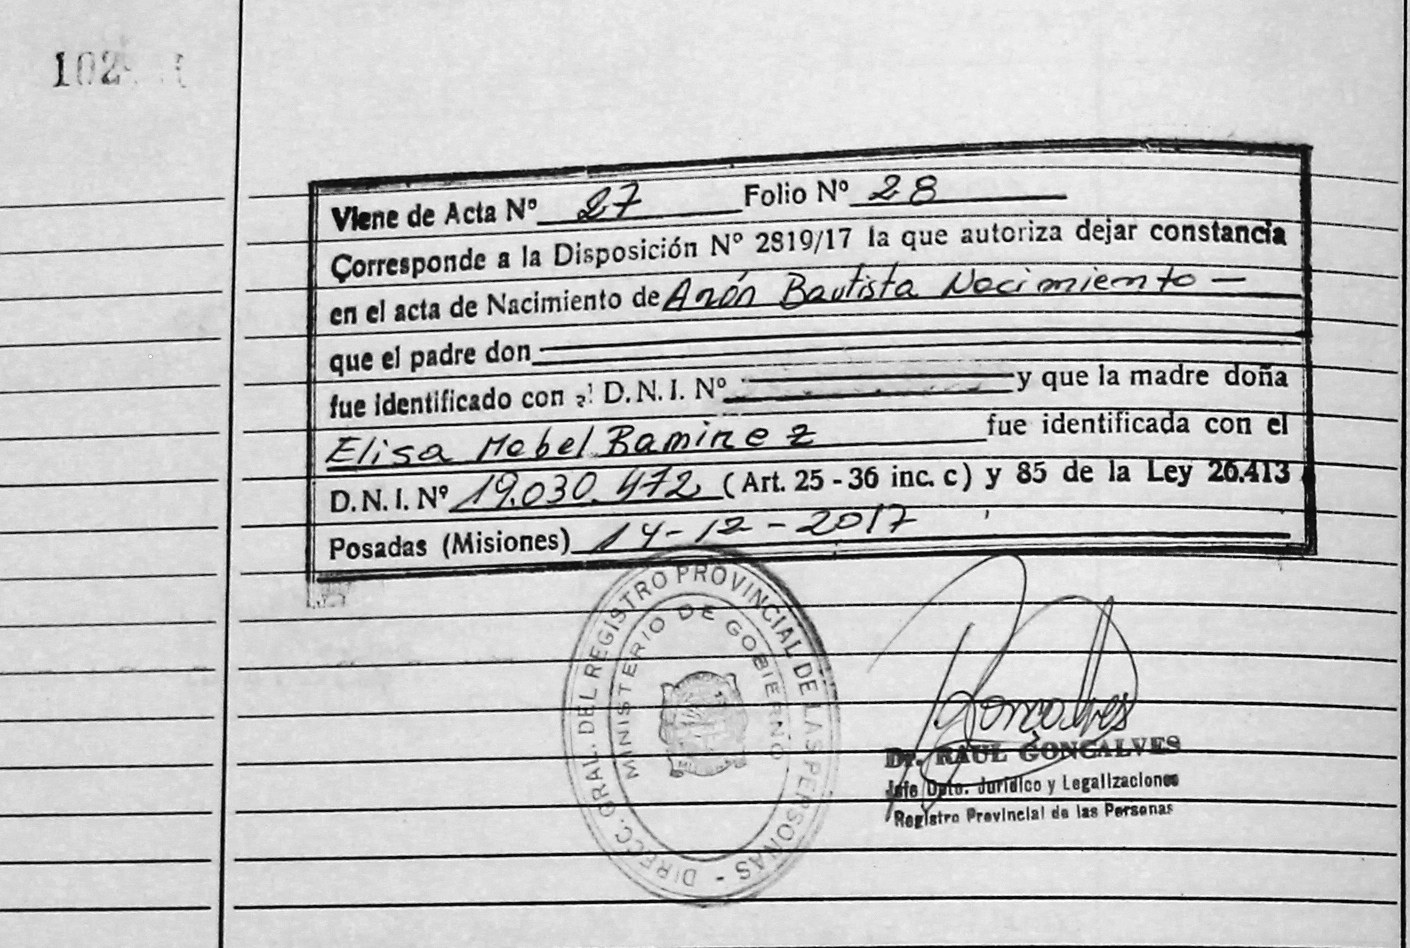 102
Viene de Acta Nº 27 Folio Nº 28
Corresponde a la Disposición Nº 2819/17 la que autoriza dejar constancia
en el acta de Nacimiento de Anón Bautista Nacimiento —
que el padre don
fue identificado con el D.N.I. Nº y que la madre doña
Elisa Mabel Ramirez fue identificada con el
D.N.I. Nº 19.030.472 (Art. 25 - 36 inc. c) y 85 de la Ley 26.413
Posadas (Misiones) 14-12-2017
DIRECC. GRAL. DEL REGISTRO PROVINCIAL DE LAS PERSONAS -
MINISTERIO DE GOBIERNO
Gonçalves
Dr. RAUL GONCALVES
Jefe Dpto. Jurídico y Legalizaciones
Registro Provincial de las Personas